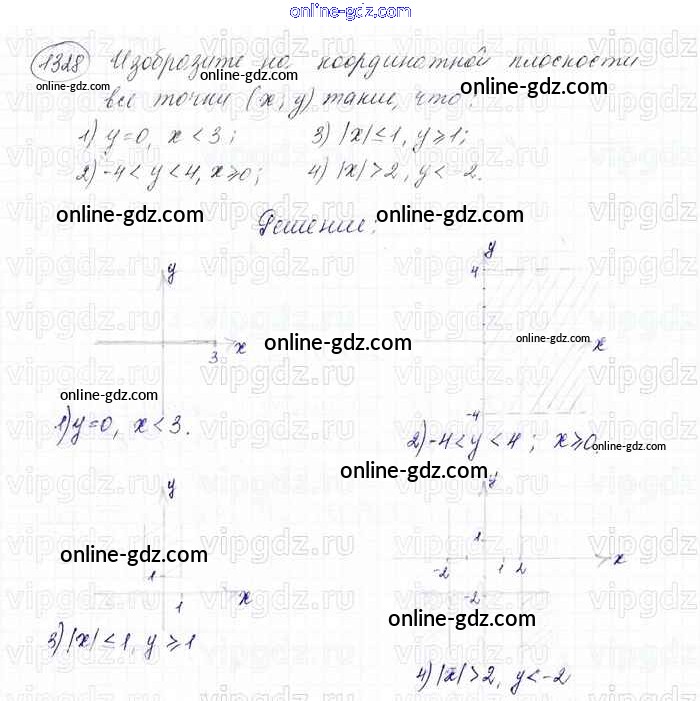 online-gdz.com
1328 Изобразите на координатной плоскости
все точки (x; y) такие, что:
1) y=0, x<3; 3) |x|≤1, y≥1;
2) -4<y<4, x≥0; 4) |x|>2, y<-2.
Решение:
y
y
4
3
x
x
-4
1) y=0, x<3.
2) -4<y<4; x≥0
y
y
1
1
x
-2
1
2
x
-2
1
3) |x|≤1, y≥1
4) |x|>2, y<-2
online-gdz.com
online-gdz.com
online-gdz.com
online-gdz.com
online-gdz.com
online-gdz.com
online-gdz.com
online-gdz.com
online-gdz.com
online-gdz.com
online-gdz.com
vipgdz.ru